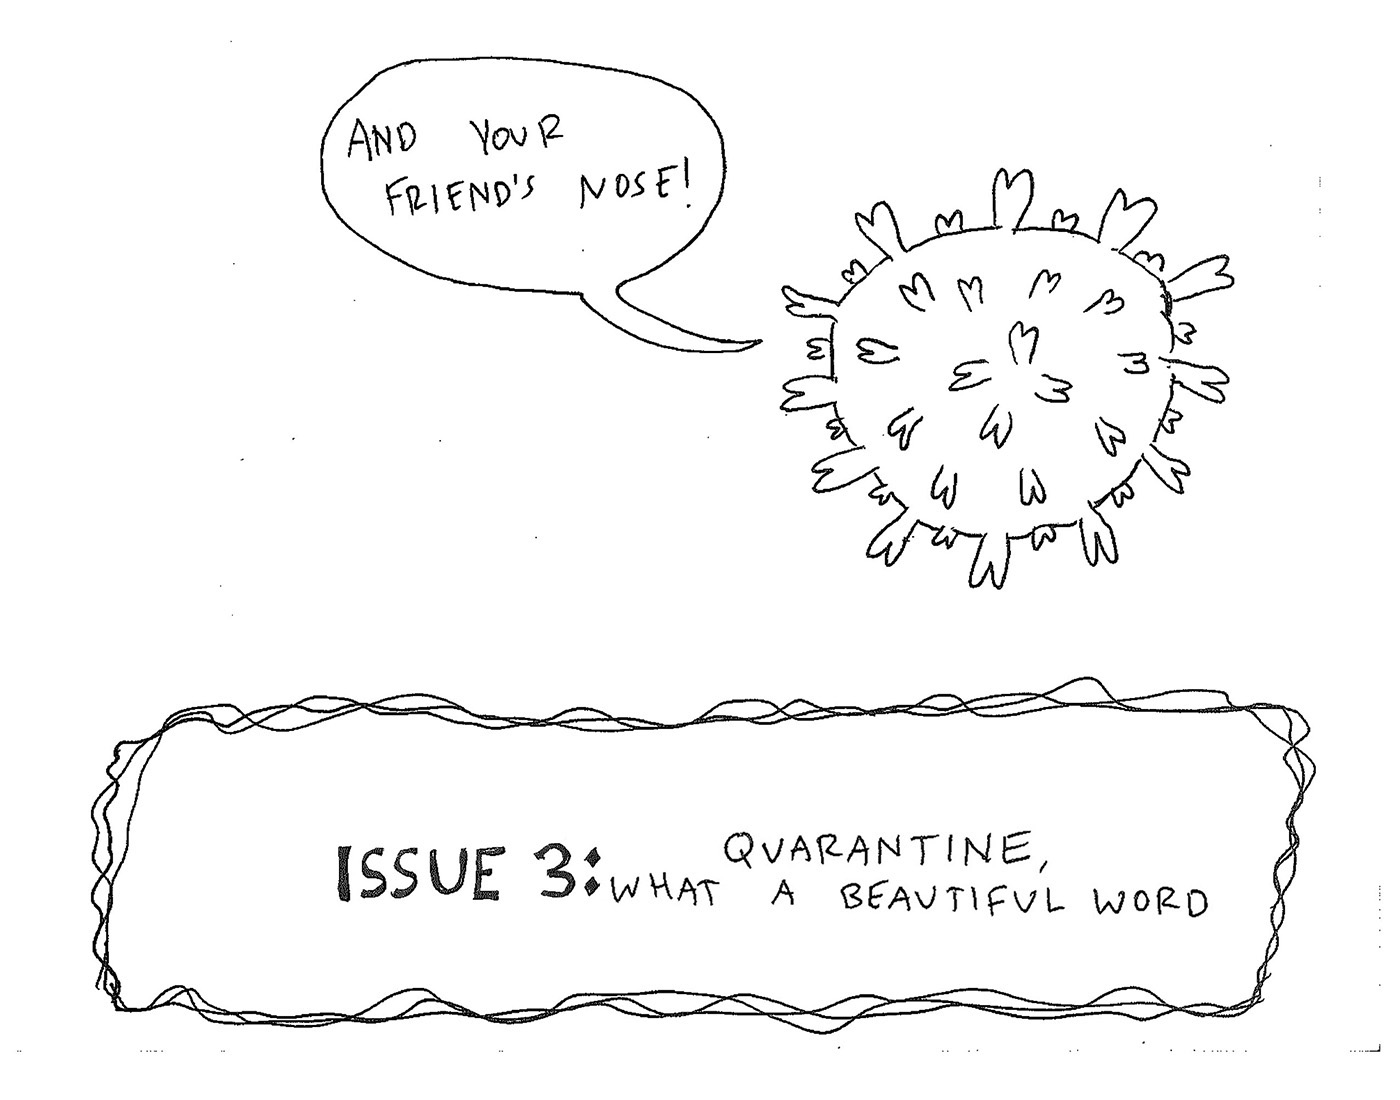 AND YOUR
FRIEND'S NOSE!
ISSUE 3: QUARANTINE,
WHAT A BEAUTIFUL WORD